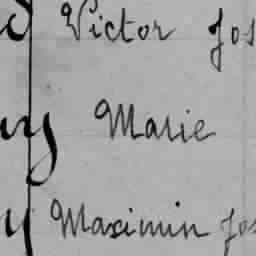 Victor Jos
Marie
Maximin Jos